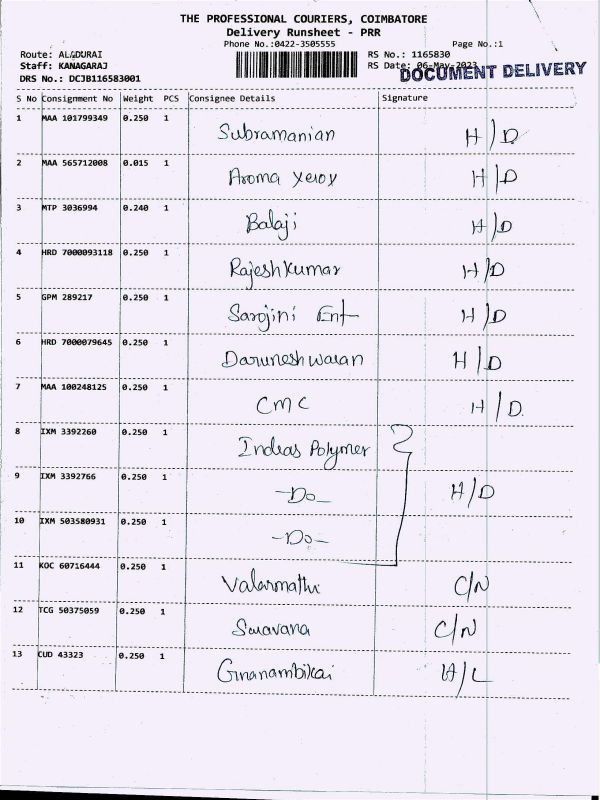 THE PROFESSIONAL COURIERS, COIMBATORE
Delivery Runsheet - PRR
Phone No.:0422-3505555 Page No.:1
Route: ALADURAI RS No.: 1165830
Staff: KANAGARAJ RS Date: 06-May-2023
DRS No.: DCJB116583001 DOCUMENT DELIVERY
S No Consignment No Weight PCS Consignee Details Signature
1 MAA 101799349 0.250 1 Subramanian H/D
2 MAA 565712008 0.015 1 Aroma Xerox H/D
3 MTP 3036994 0.240 1 Balaji H/D
4 HRD 7000093118 0.250 1 Rajesh Kumar H/D
5 GPM 289217 0.250 1 Sarojini Ent H/D
6 HRD 7000079645 0.250 1 Daruneshwaran H/D
7 MAA 100248125 0.250 1 CMC H/D.
8 IXM 3392260 0.250 1 Indras Polymer
9 IXM 3392766 0.250 1 -Do- H/D
10 IXM 503580931 0.250 1 -Do-
11 KOC 60716444 0.250 1 Valarmathi C/N
12 TCG 50375059 0.250 1 Saravana C/N
13 CUD 43323 0.250 1 Gnanambikai H/L